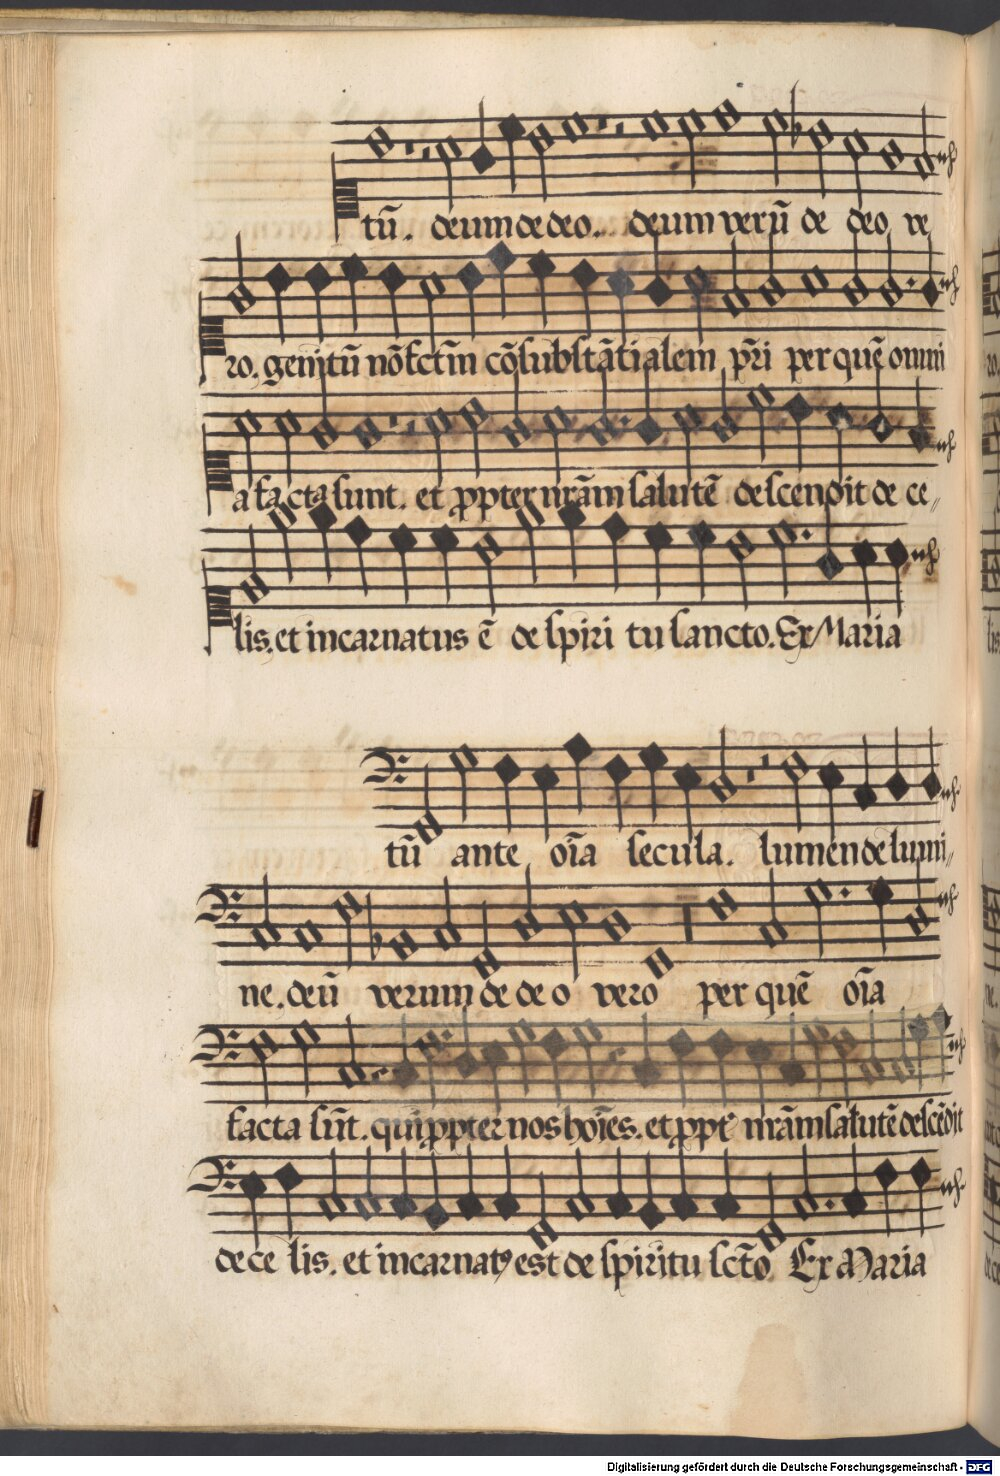 tū. deum de deo. deum verū de deo ve
ro. genitū nō fctm̄ cōsubstātialem pr̄i per quē omni
a facta sunt. et ꝓpter nr̄am salutē descendit de ce„
lis. et incarnatus ē de spiri tu sancto. Ex Maria
tū ante oīa secula. lumen de lumi„
ne. deū verum de deo vero per quē oīa
facta sūt. qui ꝓpter nos hoīes. et ꝓpt̄ nr̄am salutē descēdit
de ce lis. et incarnatꝰ est de spiritu scto̅ Ex Maria
Digitalisierung gefördert durch die Deutsche Forschungsgemeinschaft - DFG